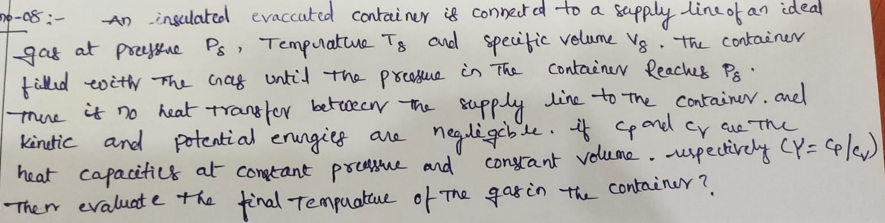 no-08:- An insulated evaccuted container is connected to a supply line of an ideal
gas at pressure Ps, Temperature Ts and specific volume Vs. The container
filled with The Gas until the pressure in The Container Reaches Ps.
There is no heat transfer between the supply line to The container. and
kinetic and potential energies are negligible. if Cp and Cv are The
heat capacities at constant pressure and constant volume. respectively (γ = Cp/Cv)
Then evaluate the final Temperature of The gas in the container?